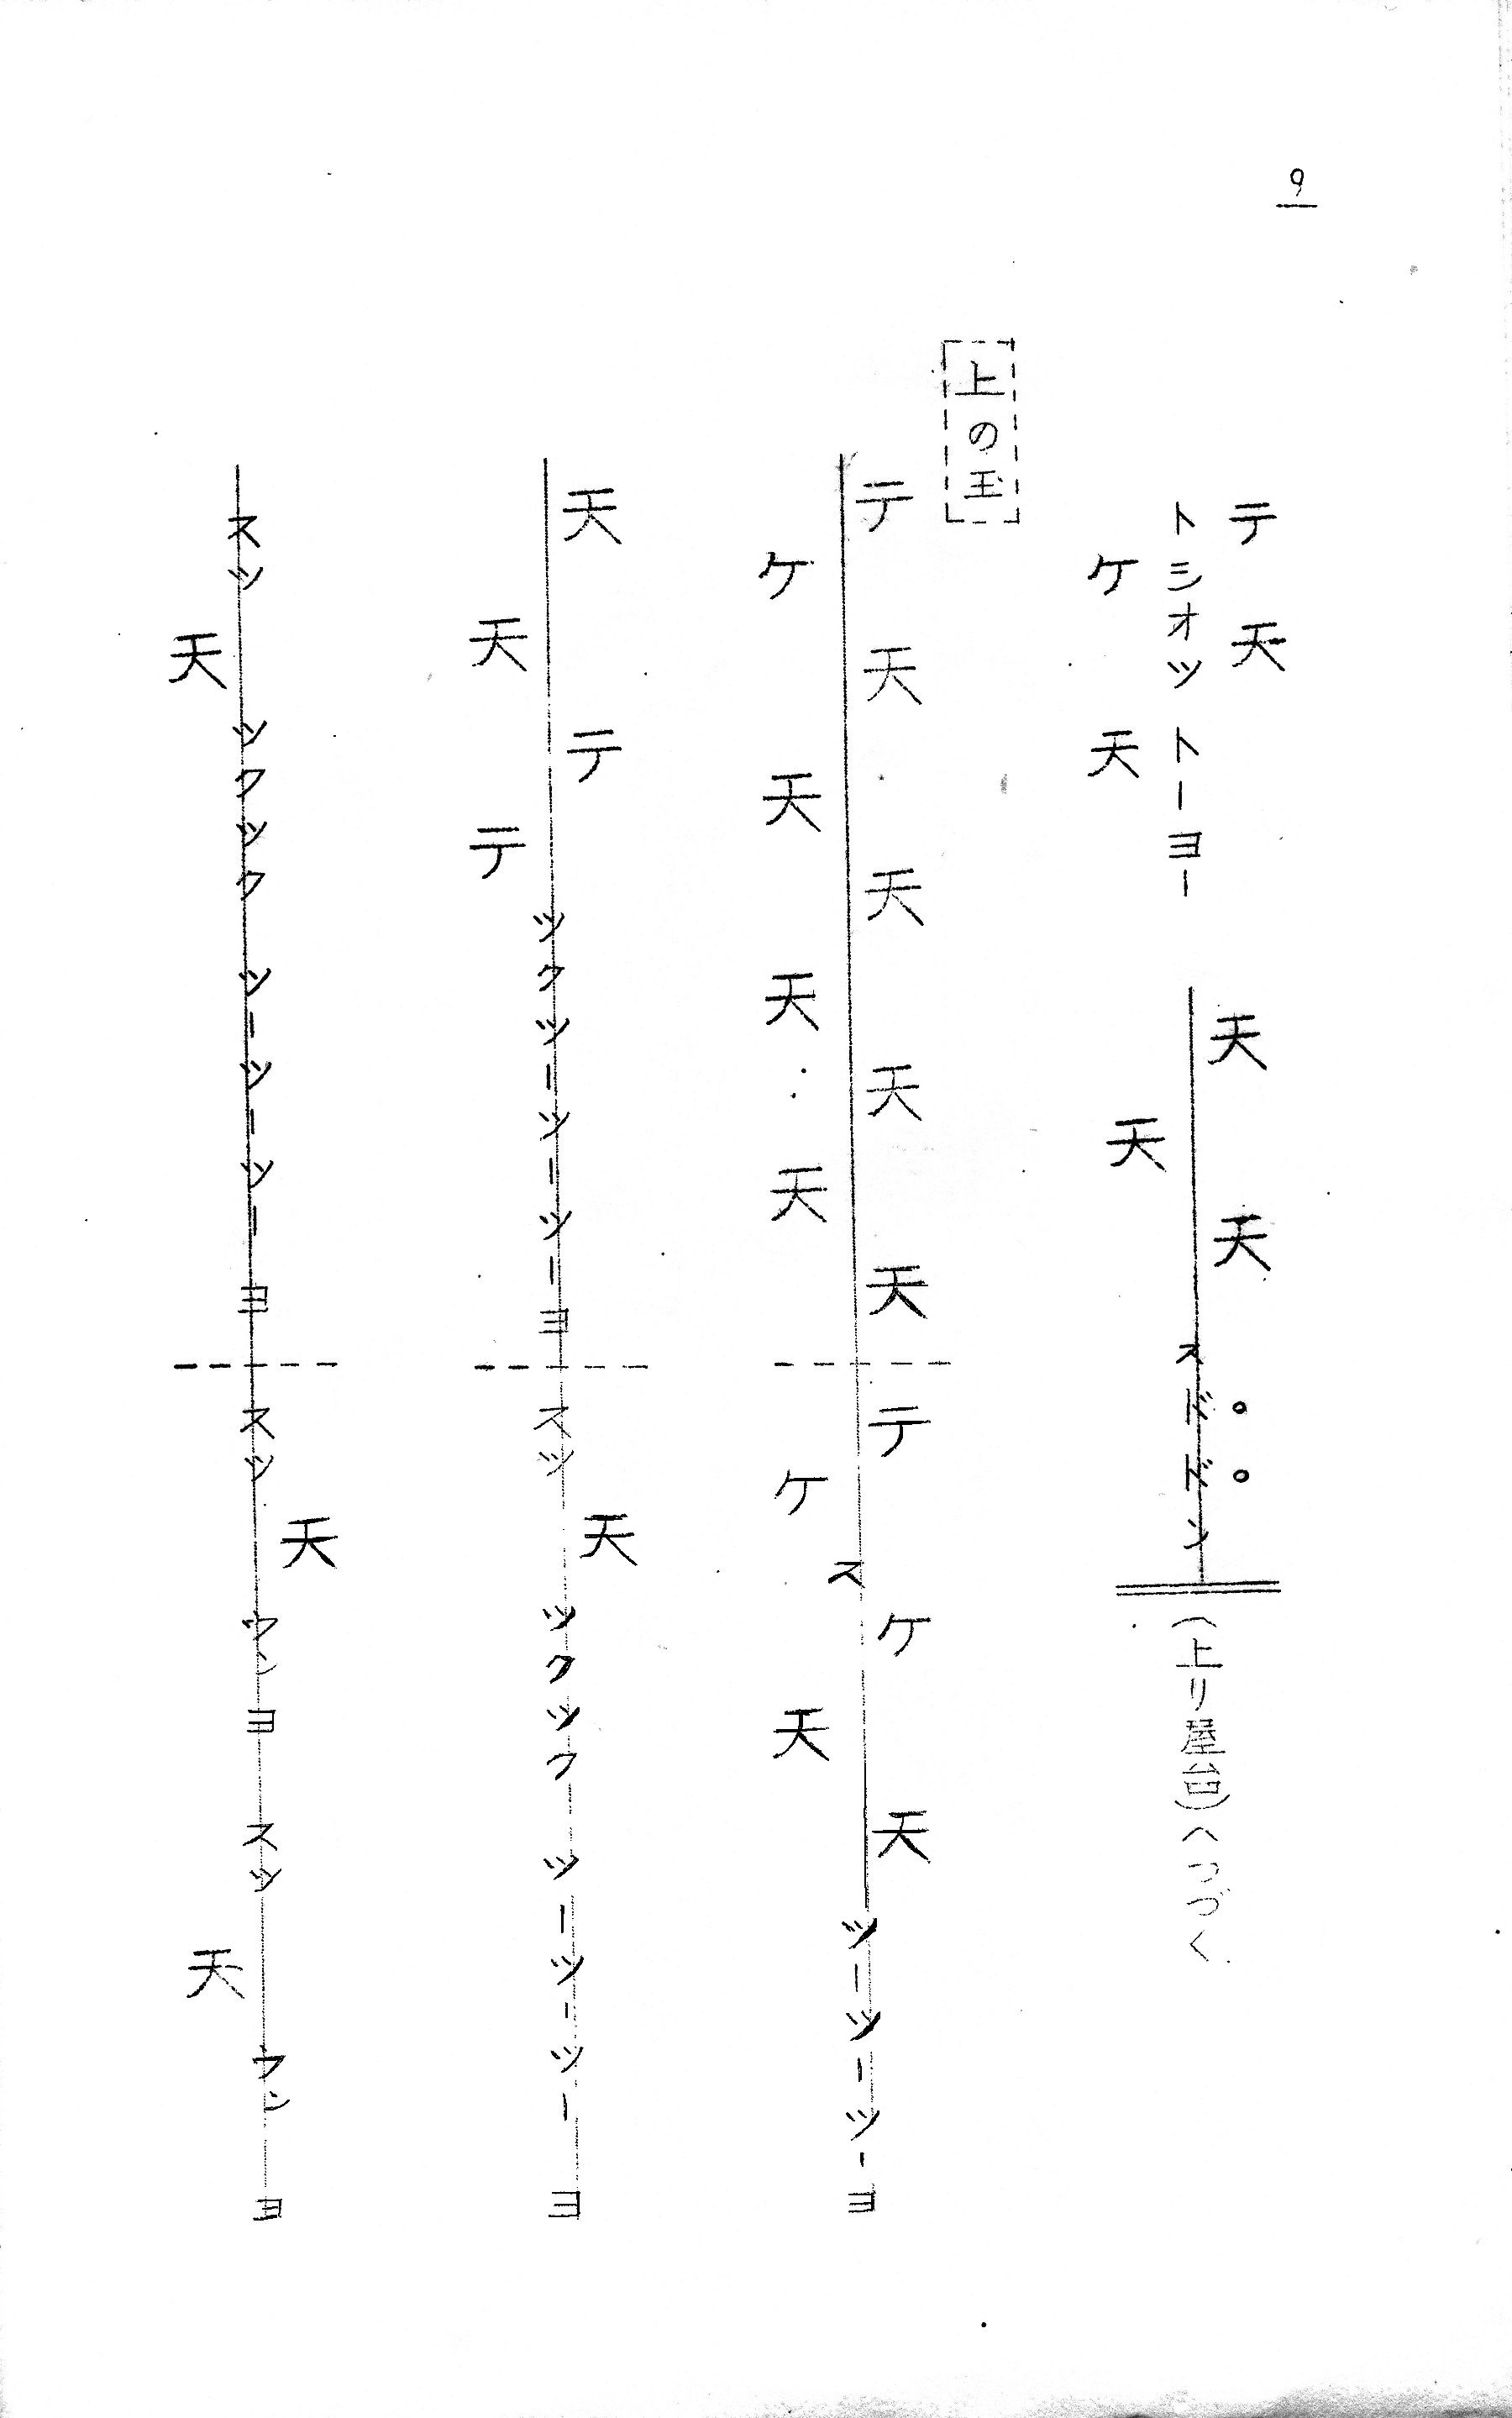 9
テ 天
トシオツ トーヨー
ケ 天
天 天 天 スドドン (上り屋台)へつづく
上の玉
テ ケ 天 天 天 天 天 天 天 テ ケ ス ケ 天 天 ツーツーツーヨ
天 天 テ テ ツクツーツーツーヨ スツ 天 ツクツク ツーツーツーヨ
スツ 天 ツクツク ツーツーツーヨ スツ 天 ウンヨ スツ 天 ウンヨ